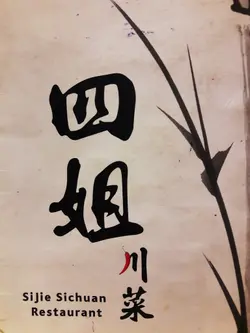 四姐
川菜
SiJie Sichuan
Restaurant